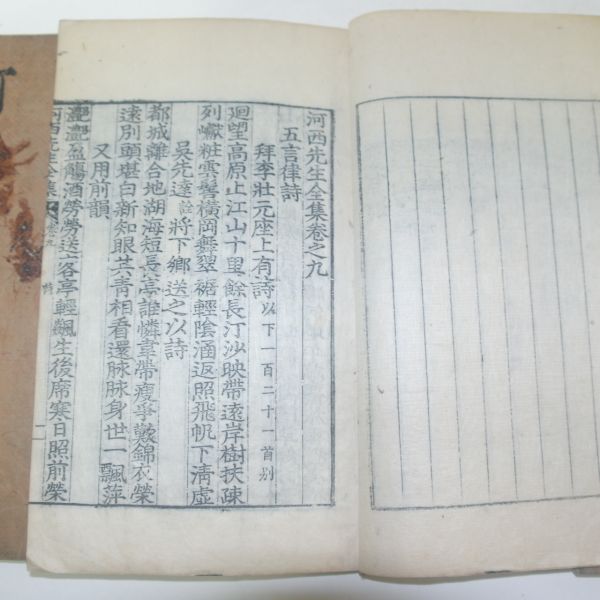 河西先生全集卷之九
五言律詩
拜李壯元座上有詩以下一百二十一首別
迴望高原上江山十里餘長汀沙映帶遠岸樹扶疎
列巘粧雲髻橫岡舞翠裾輕陰涵返照飛帆下淸虛
吳先達 將下鄉送之以詩
都城離合地湖海短長亭誰憐韋帶瘦爭歎錦衣榮
遠別頭堪白新知眼共靑相看還脉脉身世一飄萍
又用前韻
灩灩盈觴酒勞勞送客亭輕飆生後席寒日照前榮
河西先生全集 卷九 詩 一